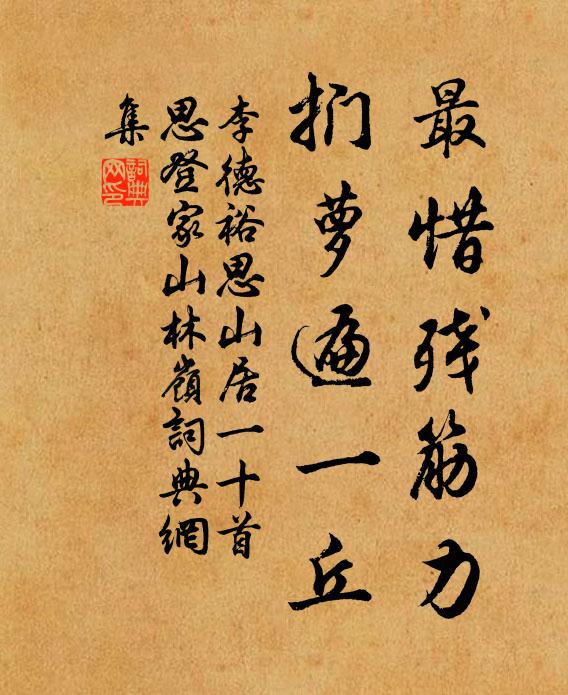 最惜残筋力
扪萝遍一丘
李德裕思山居一十首
思登家山林嶺詞典網
集
詞典
网印